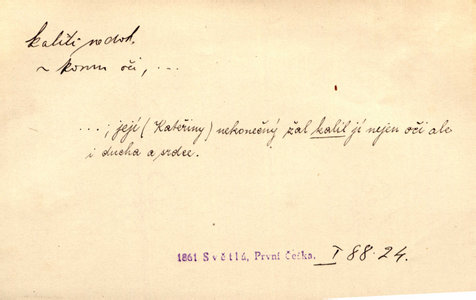 kaliti nedok.
~ komu oči, ...
...; její (Kateřiny) nekonečný žal kalil jí nejen oči ale
i ducha a srdce.
1861 Světlá, První Češka. I 88. 24.